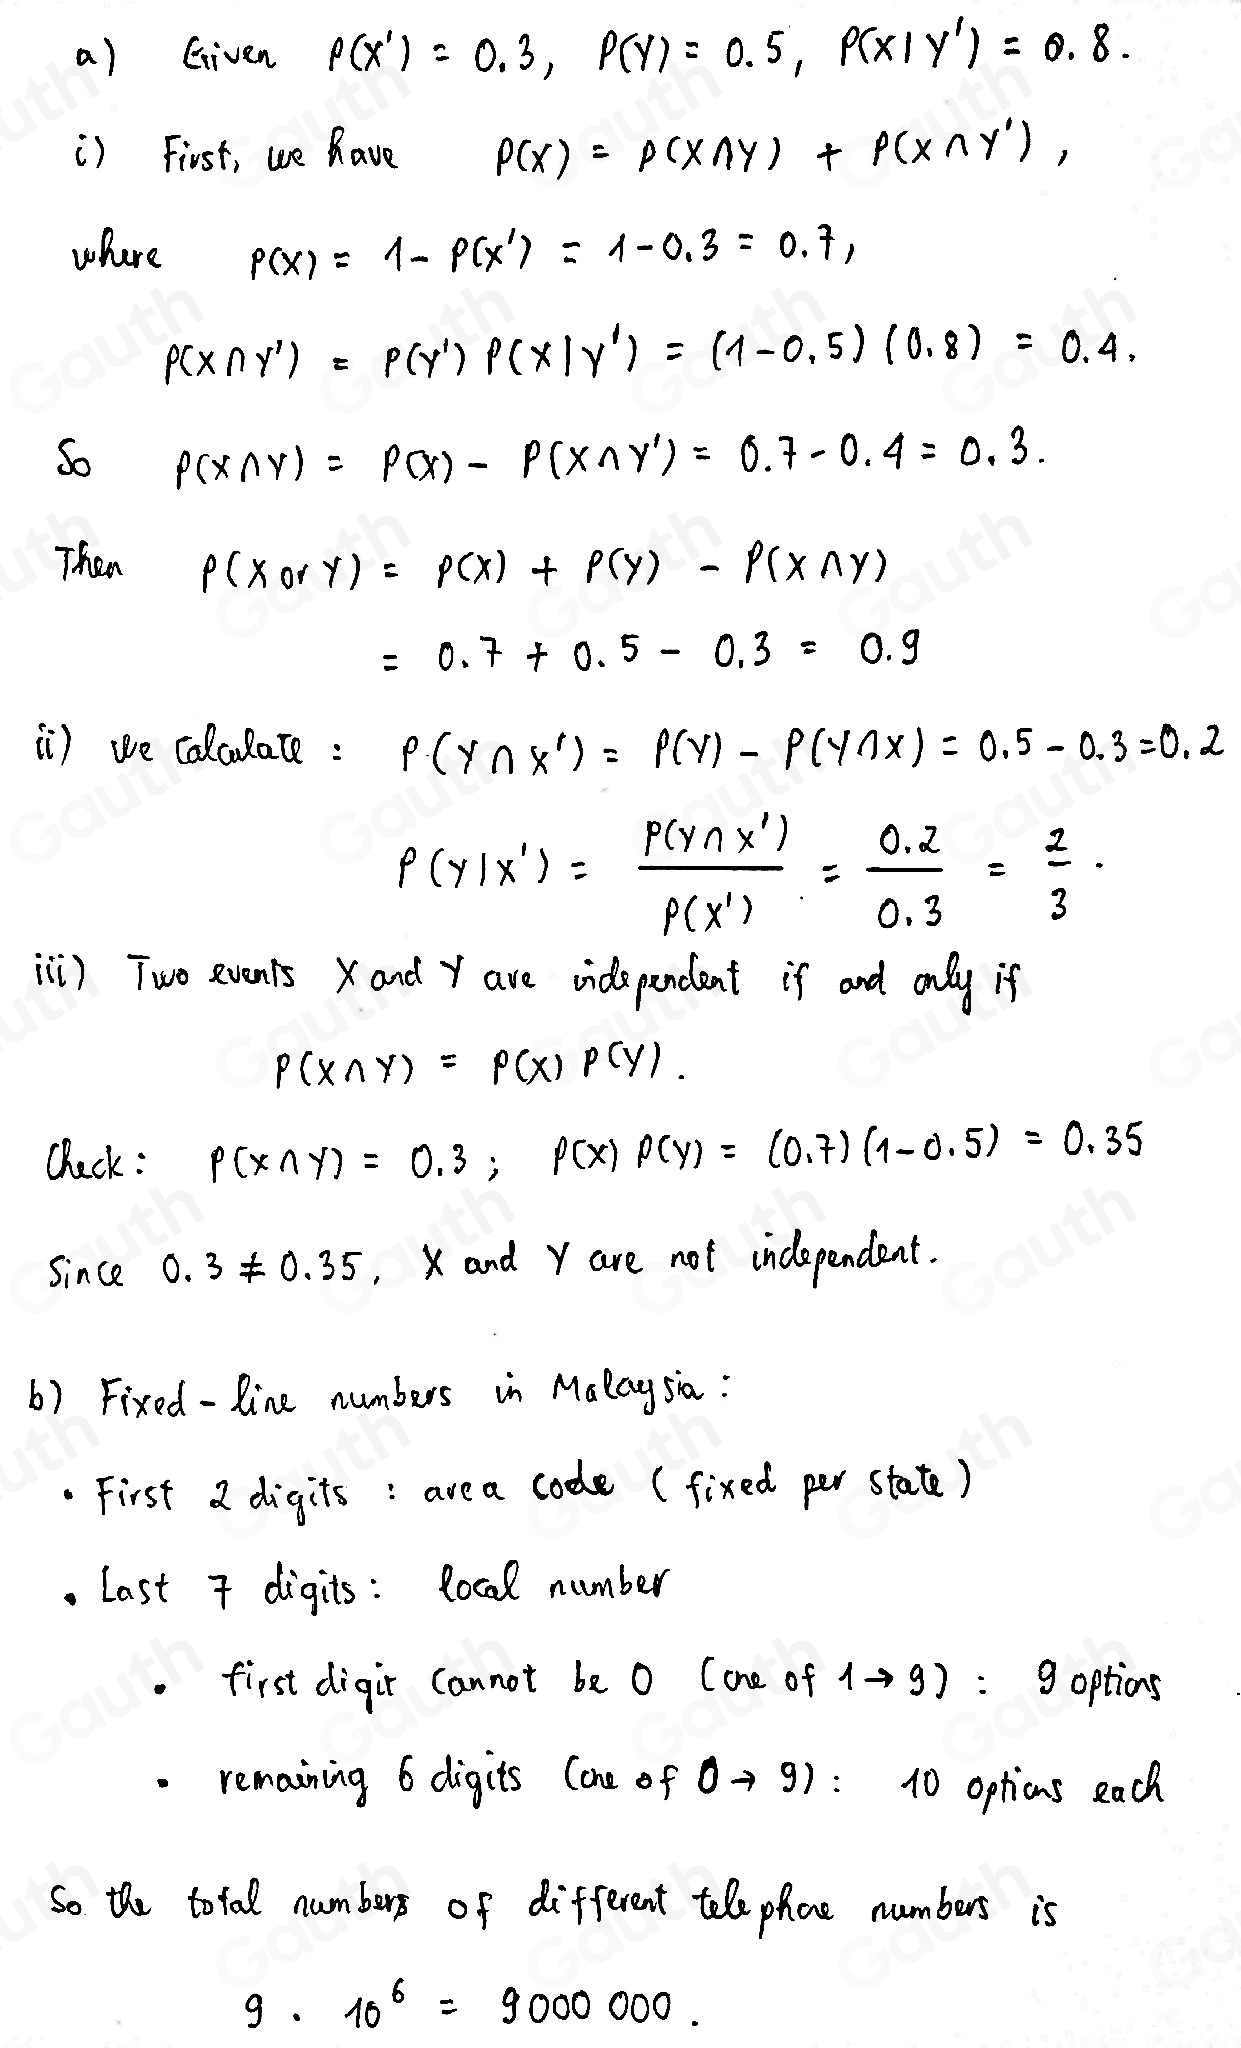 a) Given P(X') = 0.3, P(Y) = 0.5, P(X|Y') = 0.8.
i) First, we have P(X) = P(X∩Y) + P(X∩Y'),
where P(X) = 1 - P(X') = 1 - 0.3 = 0.7,
P(X∩Y') = P(Y') P(X|Y') = (1-0.5)(0.8) = 0.4.
So P(X∩Y) = P(X) - P(X∩Y') = 0.7 - 0.4 = 0.3.
Then P(X or Y) = P(X) + P(Y) - P(X∩Y)
= 0.7 + 0.5 - 0.3 = 0.9
ii) We calculate : P(Y∩X') = P(Y) - P(Y∩X) = 0.5 - 0.3 = 0.2
P(Y|X') = P(Y∩X') / P(X') = 0.2 / 0.3 = 2/3.
iii) Two events X and Y are independent if and only if
P(X∩Y) = P(X) P(Y).
Check: P(X∩Y) = 0.3 ; P(X) P(Y) = (0.7)(1-0.5) = 0.35
Since 0.3 ≠ 0.35, X and Y are not independent.
b) Fixed-line numbers in Malaysia :
• First 2 digits : area code (fixed per state)
• Last 7 digits : local number
• first digit cannot be 0 (one of 1→9) : 9 options
• remaining 6 digits (one of 0→9) : 10 options each
So the total numbers of different telephone numbers is
9 . 10^6 = 9000 000.